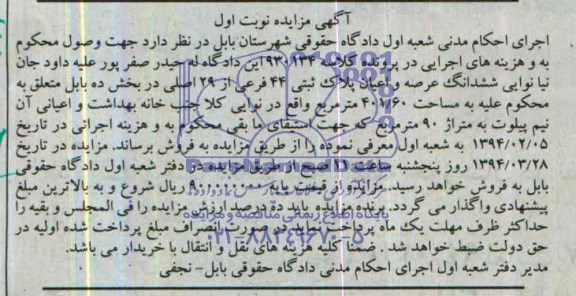 آگهی مزایده نوبت اول
اجرای احکام مدنی شعبه اول دادگاه حقوقی شهرستان بابل در نظر دارد جهت وصول محکوم
به و هزینه های اجرایی در پرونده کلاسه این دادگاه له حیدر صفر پور علیه داود جان
نیا نوایی ششدانگ عرصه و اعیان پلاک ثبتی ۴۴ فرعی از ۲۹ اصلی در بخش ده بابل متعلق به
محکوم علیه به مساحت ۴۰۱/۶۰ مترمربع واقع در نوایی کلا جنب خانه بهداشت و اعیانی آن
نیم پیلوت به متراژ ۹۰ مترمربع که جهت استیفای ما بقی محکوم به و هزینه اجرائی در تاریخ
۱۳۹۴/۰۲/۰۵ به شعبه اول معرفی نموده را از طریق مزایده به فروش برساند. مزایده در تاریخ
۱۳۹۴/۰۳/۲۸ روز پنجشنبه ساعت صبح از طریق مزایده در دفتر شعبه اول دادگاه حقوقی
بابل به فروش خواهد رسید. مزایده از قیمت پایه ریال شروع و به بالاترین مبلغ
پیشنهادی واگذار می گردد. برنده مزایده باید ده درصد ارزش مزایده را فی المجلس و بقیه را
حداکثر ظرف مهلت یک ماه پرداخت نماید در صورت انصراف مبلغ پرداخت شده اولیه در
حق دولت ضبط خواهد شد . ضمنا کلیه هزینه های نقل و انتقال با خریدار می باشد.
مدیر دفتر شعبه اول اجرای احکام مدنی دادگاه حقوقی بابل - نجفی
پایگاه اطلاع رسانی مناقصه و مزایده
۰۲۱-۸۸۳۴۹۶۷۰-۵